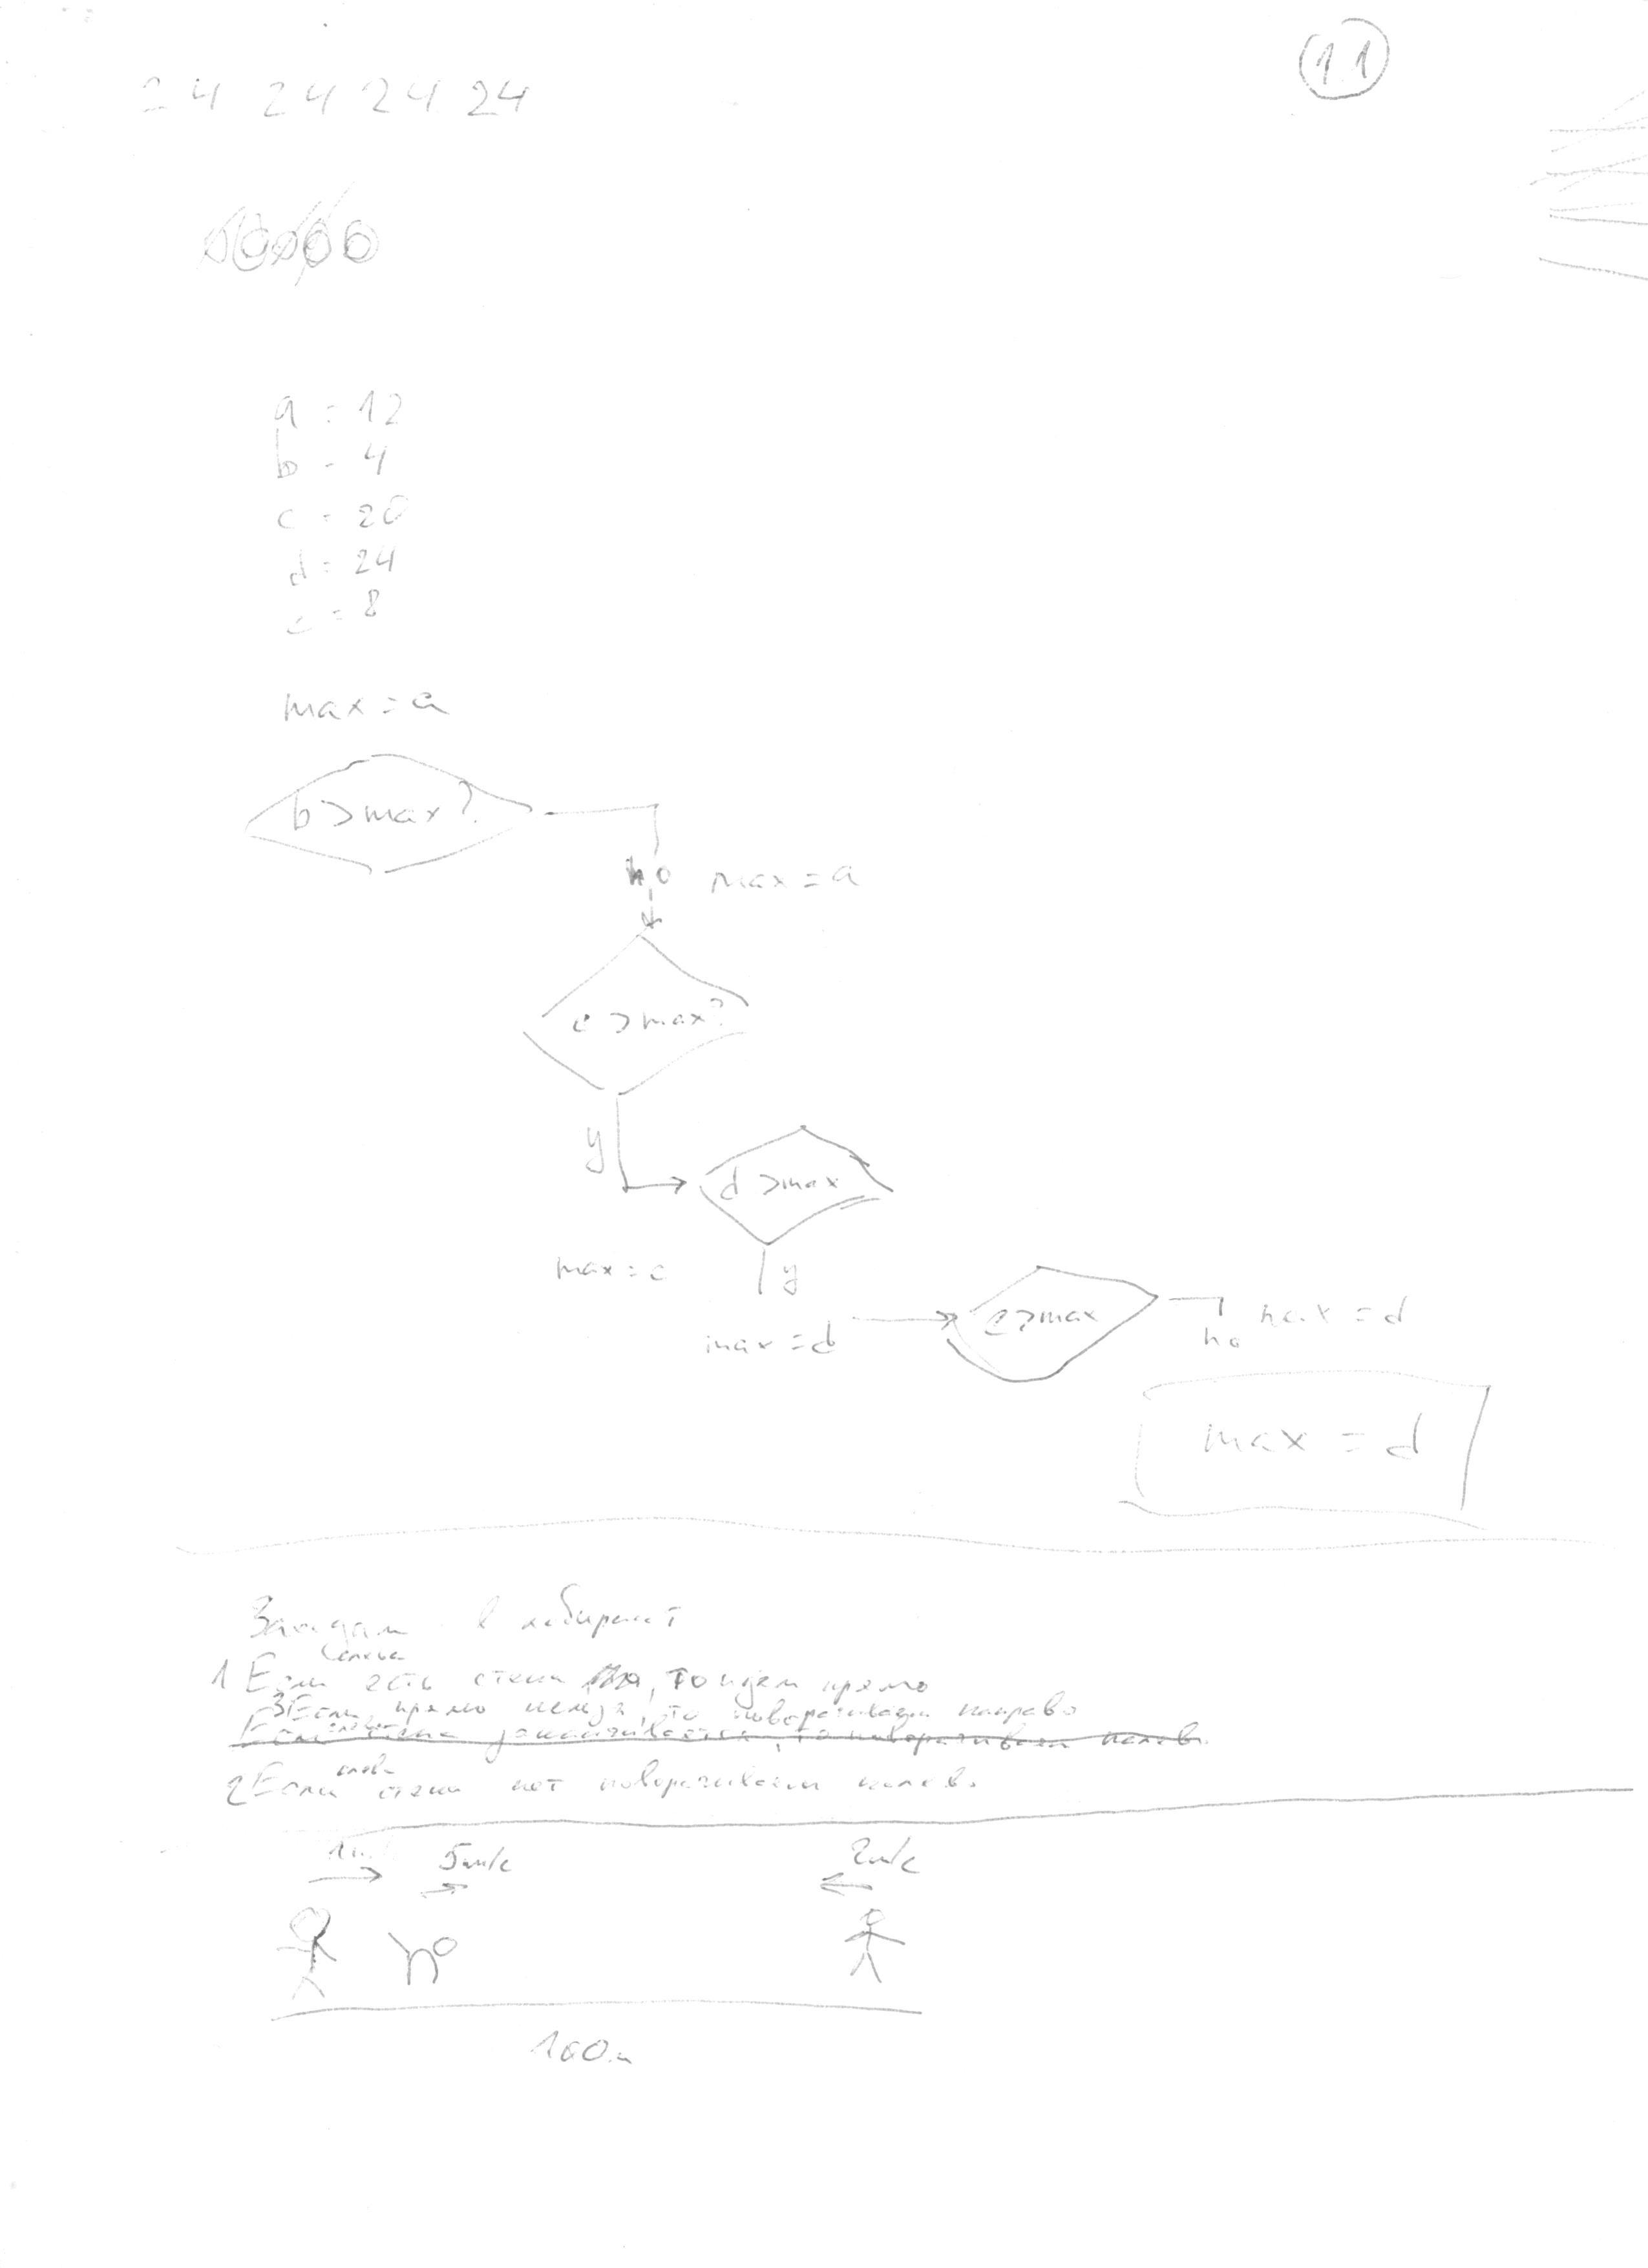 11
24 24 24 24
a = 12
b = 4
c = 20
d = 24
e = 8
max = a
b > max?
no max = a
c > max?
y
d > max
max = c
y
max = d
e > max
no max = d
max = d
Заходим в лабиринт
слева
1 Если есть стена, то идем прямо
3 Если прямо нельзя, то поворачиваем направо
Если стена заканчивается, то поворачиваем налево.
слева
2 Если стены нет поворачиваем налево.
5м/с
2м/с
100м